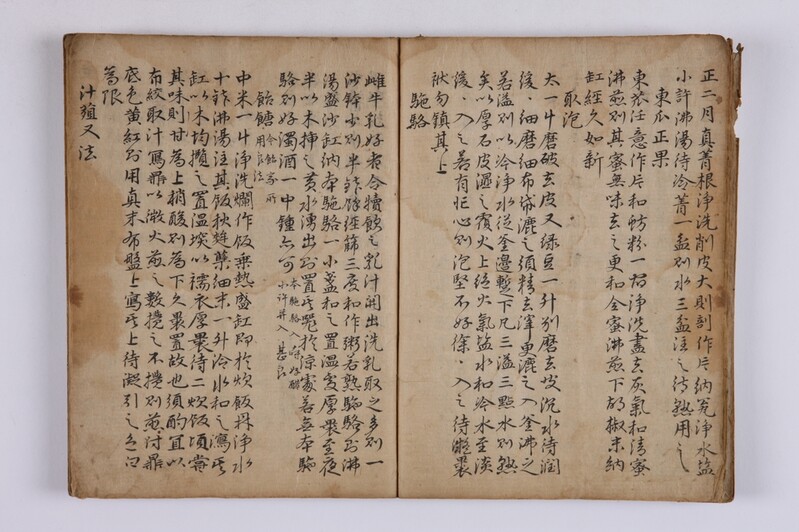 正二月真菁根淨洗削皮大則剖作片納瓮淨水塩
小許沸湯待冷菁一盆則水三盆注之待熟用之
東瓜正果
東苽任意作片和蚌粉一宿淨洗盡去灰氣和淸蜜
沸煎則其蜜無味去之更和全蜜沸煎下胡椒末納
缸經久如新
取泡
太一斗磨破去皮又綠豆一升別磨去皮沉水待润
後細磨細布帒漉之須精去滓更漉之入釜沸之
若溢則以冷淨水從釜邊蹔下凡三溢三點水則熟
矣以厚石皮濕之覆火上絶火氣塩水和冷水至淡
後入之若有忙心則泡坚不好徐入之待凝裹
袱匀鎮其上
駞酪
雌牛乳好者令犢飮之乳汁開出洗乳取之多則一
沙鉢少則半鉢體篩三度和作粥若熟駞酪則沸
湯盛沙缸納本駞酪一小盞和之置溫處厚裹至夜
半以木揷之黃水湧出則置其器於凉處若無本駞
酪則好濁酒一中鍾亦可 本駞酪入時好醋小許并入甚良
飴餹
中米一斗淨洗爛作飯乗熱盛缸即於炊飯鼎淨水
十鉢沸湯注其飯秋麰蘖細末一升冷水和之瀉其
缸以木均攪之置溫堗以襦衣厚裹待二炊飯頃嘗
其味則甘爲上稍酸則爲下久裹置故也須酌宜以
布絞取汁瀉鼎以微火煎之數攪之不攪則煎付鼎
底色黃紅則用真末布盤上瀉其上待凝引之色白
爲限
汁殖又法